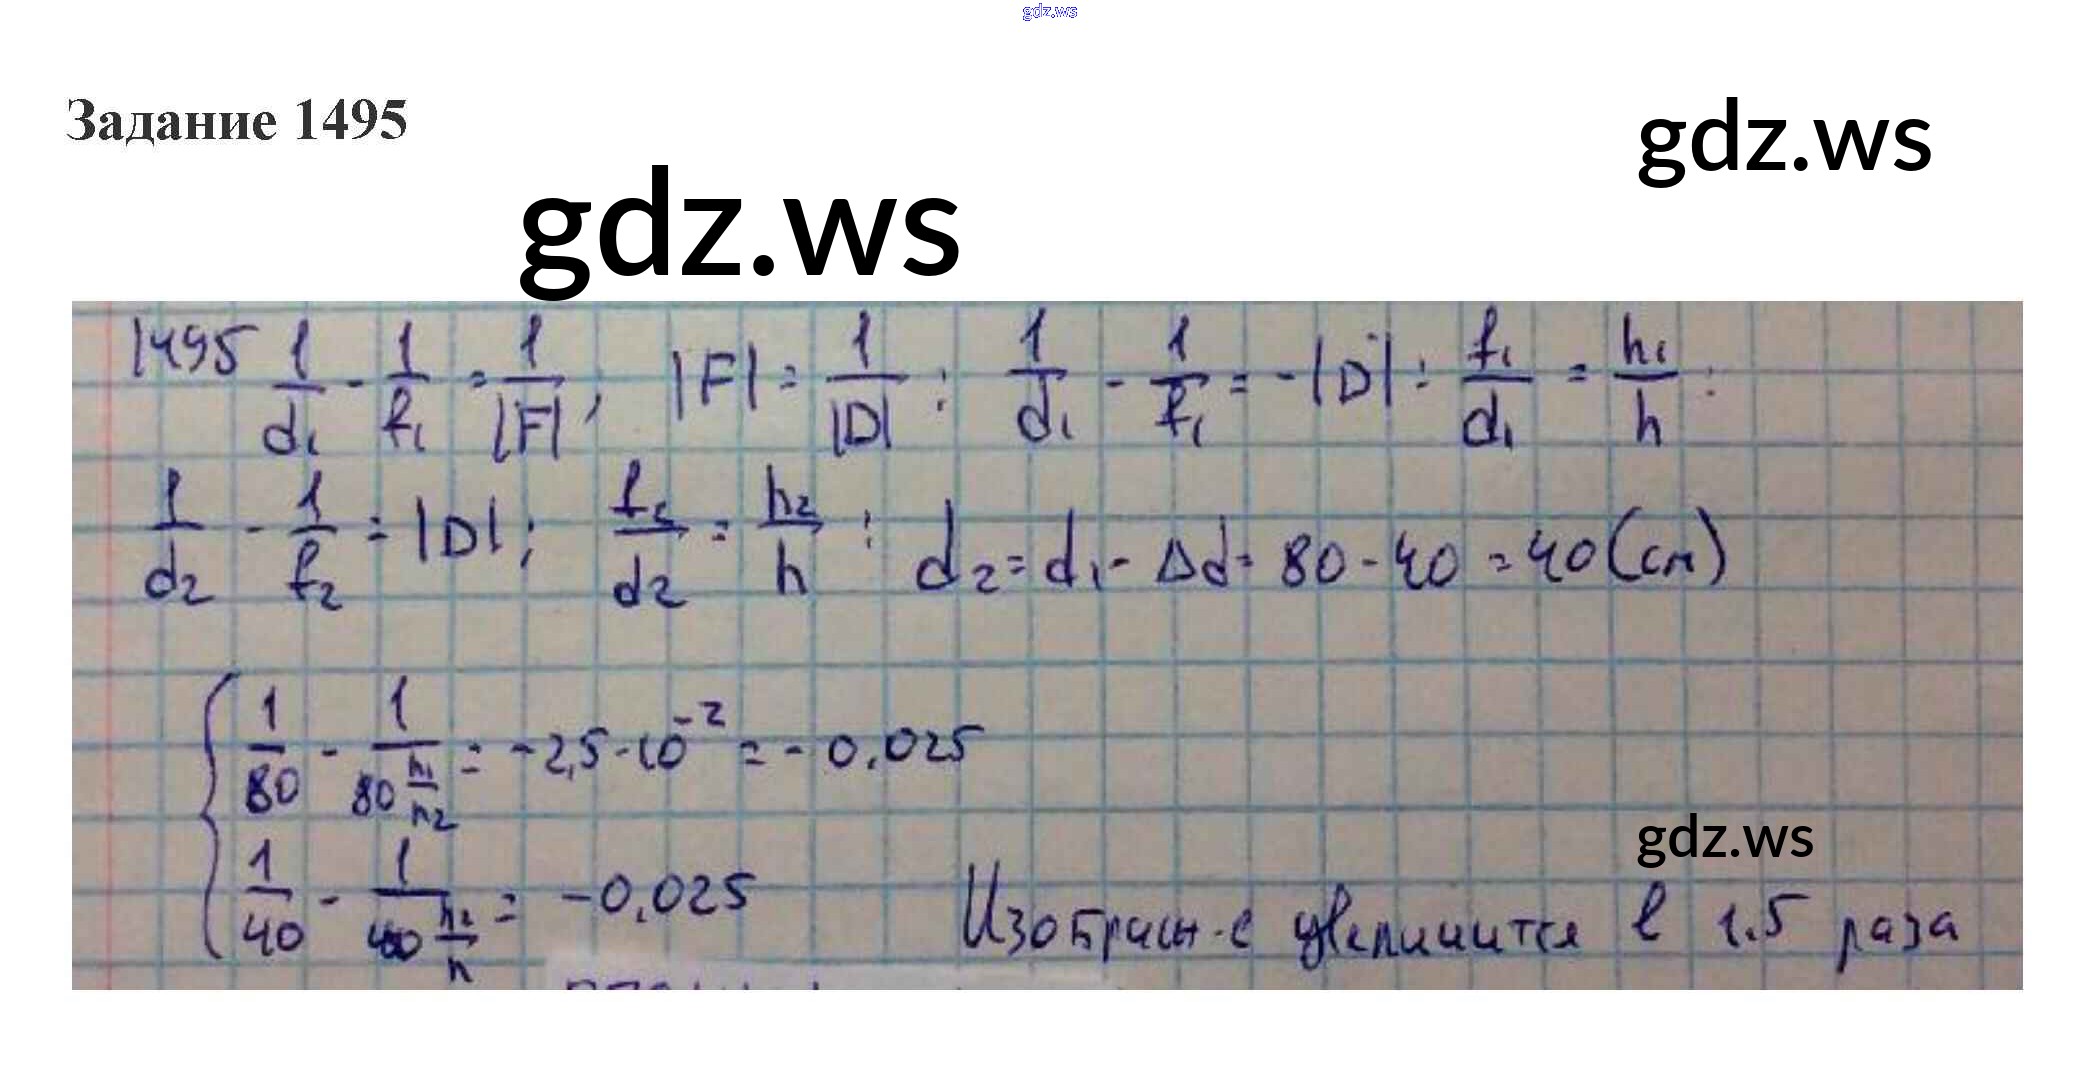 gdz.ws
Задание 1495
gdz.ws
gdz.ws
1495 1/d₁ - 1/f₁ = 1/|F| ; |F| = 1/|D| ; 1/d₁ - 1/f₁ = -|D| ; f₁/d₁ = h₁/h ;
1/d₂ - 1/f₂ = |D| ; f₂/d₂ = h₂/h ; d₂ = d₁ - Δd = 80 - 40 = 40 (см)
{ 1/80 - 1/(80 h₁/h₂) = -2,5·10⁻² = -0.025
gdz.ws
1/40 - 1/(40 h₂/h) = -0.025 Изображ-е увеличится в 1.5 раза